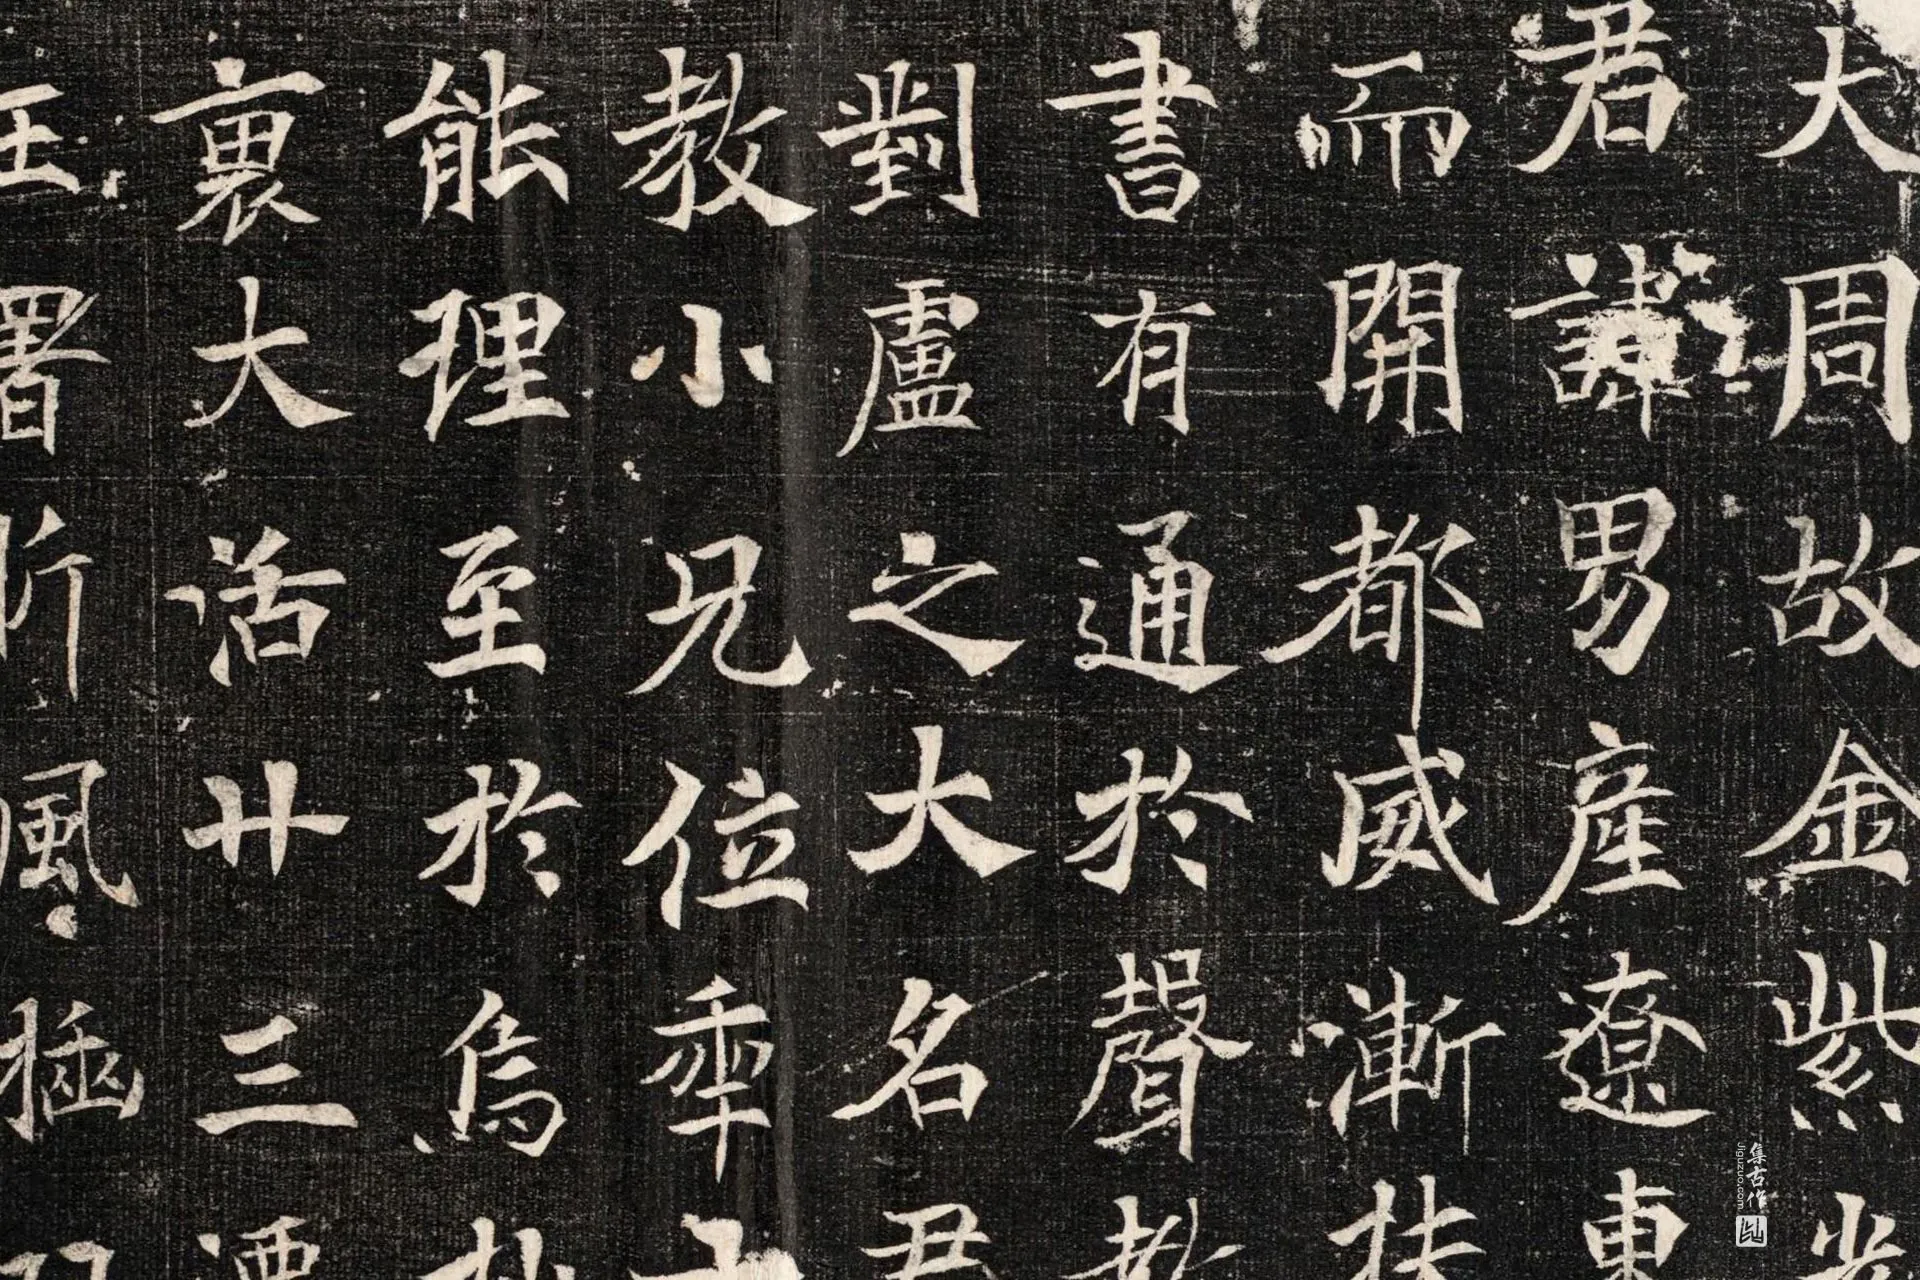 大周故金紫光
君諱男產遼東
而開都威漸扶
書有通於聲教
劉盧之大名君
教小兄位率
能理至於焉
裏大活廿三
署 風
集古作
jiguzuo.com